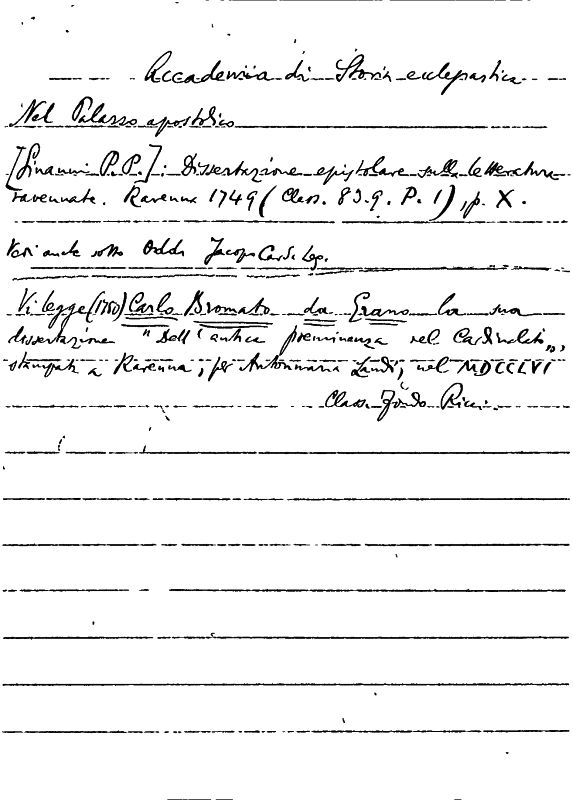 Accademia di Storia ecclesiastica
Nel Palazzo apostolico
[Ginanni P.P.]: Dissertazione epistolare sulla letteratura
ravennate. Ravenna 1749 (Class. 83.9. P. 1), p. X.
Vedi anche sotto Oddi Jacopo Card. Leg.
Vi legge (1750) Carlo Bromato da Erano la sua
dissertazione "Dell'antica preminenza nel Cardinalato",
stampata a Ravenna, per Antonmaria Landi, nel MDCCLVI
Class. Fondo Ricci.